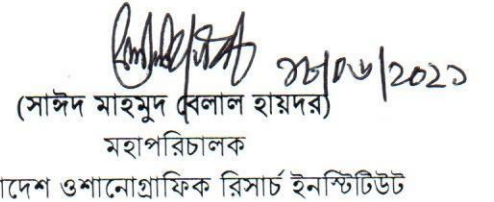 (সাঈদ মাহমুদ বেলাল হায়দর)
মহাপরিচালক
াদেশ ওশানোগ্রাফিক রিসার্চ ইনস্টিটিউট